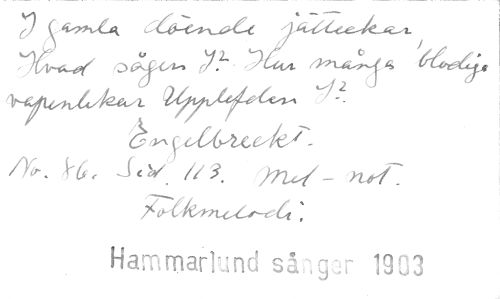 I gamla döende jätteekar,
Hvad sågen I? Hur många blodiga
vapenlekar Upplefden I?
Engelbreckt.
No. 86. Sid. 113. Mel-not.
Folkmelodi.
Hammarlund sånger 1903